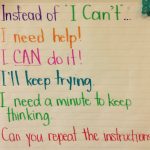 Instead of "I Can't"...
I need help!
I CAN do it!
I'll keep trying.
I need a minute to keep
thinking.
Can you repeat the instructions